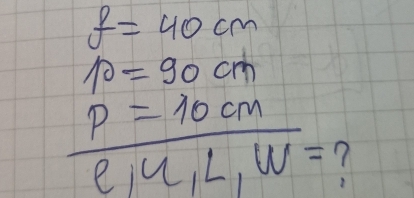 f = 40 cm
p = 90 cm
p = 10 cm
l, u, L, W = ?